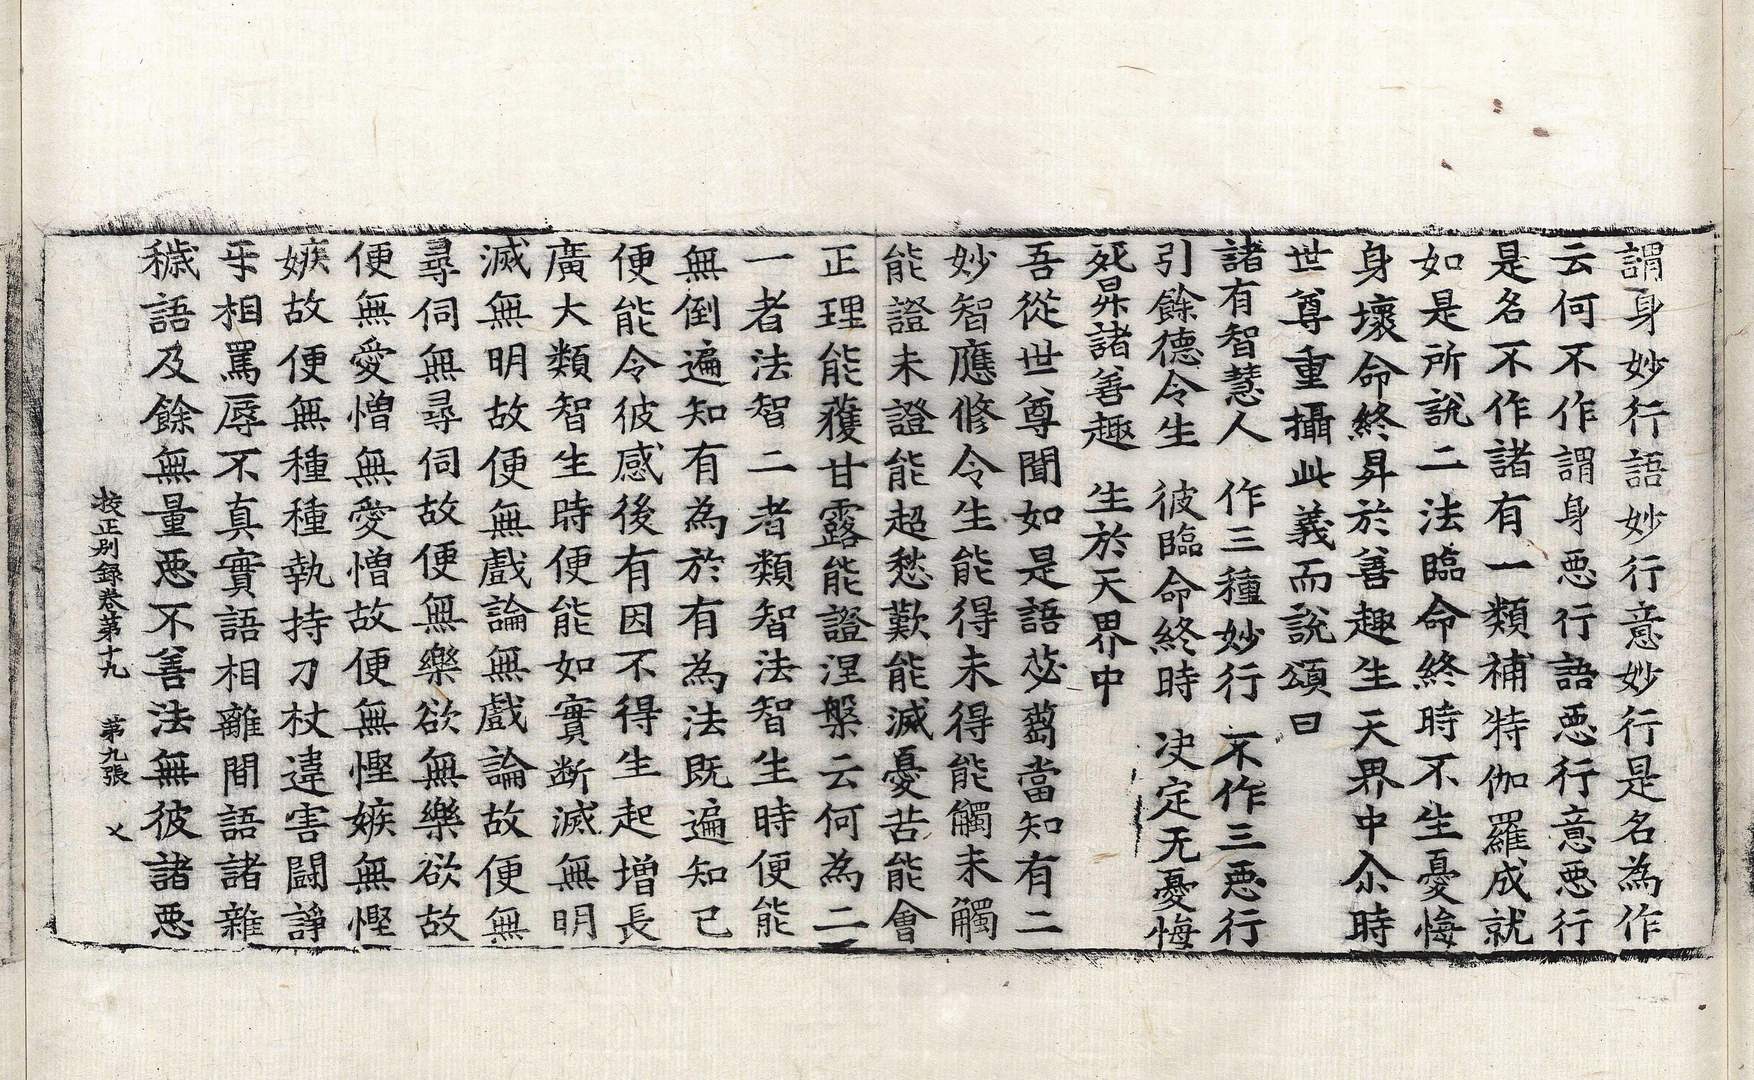 謂身妙行語妙行意妙行是名為作
云何不作謂身惡行語惡行意惡行
是名不作諸有一類補特伽羅成就
如是所說二法臨命終時不生憂悔
身壞命終昇於善趣生天界中尒時
世尊重攝此義而說頌曰
諸有智慧人 作三種妙行 不作三惡行
引餘德令生 彼臨命終時 決定无憂悔
死昇諸善趣 生於天界中
吾從世尊聞如是語苾蒭當知有二
妙智應修令生能得未得能觸未觸
能證未證能超愁歎能滅憂苦能會
正理能獲甘露能證涅槃云何為二
一者法智二者類智法智生時便能
無倒遍知有為於有為法既遍知已
便能令彼感後有因不得生起增長
廣大類智生時便能如實断滅無明
滅無明故便無戲論無戲論故便無
尋伺無尋伺故便無樂欲無樂欲故
便無愛憎無愛憎故便無慳嫉無慳
嫉故便無種種執持刀杖違害鬪諍
乎相罵辱不真實語相離間語諸雜
穢語及餘無量惡不善法無彼諸惡
挍正別録卷第十九 第九張